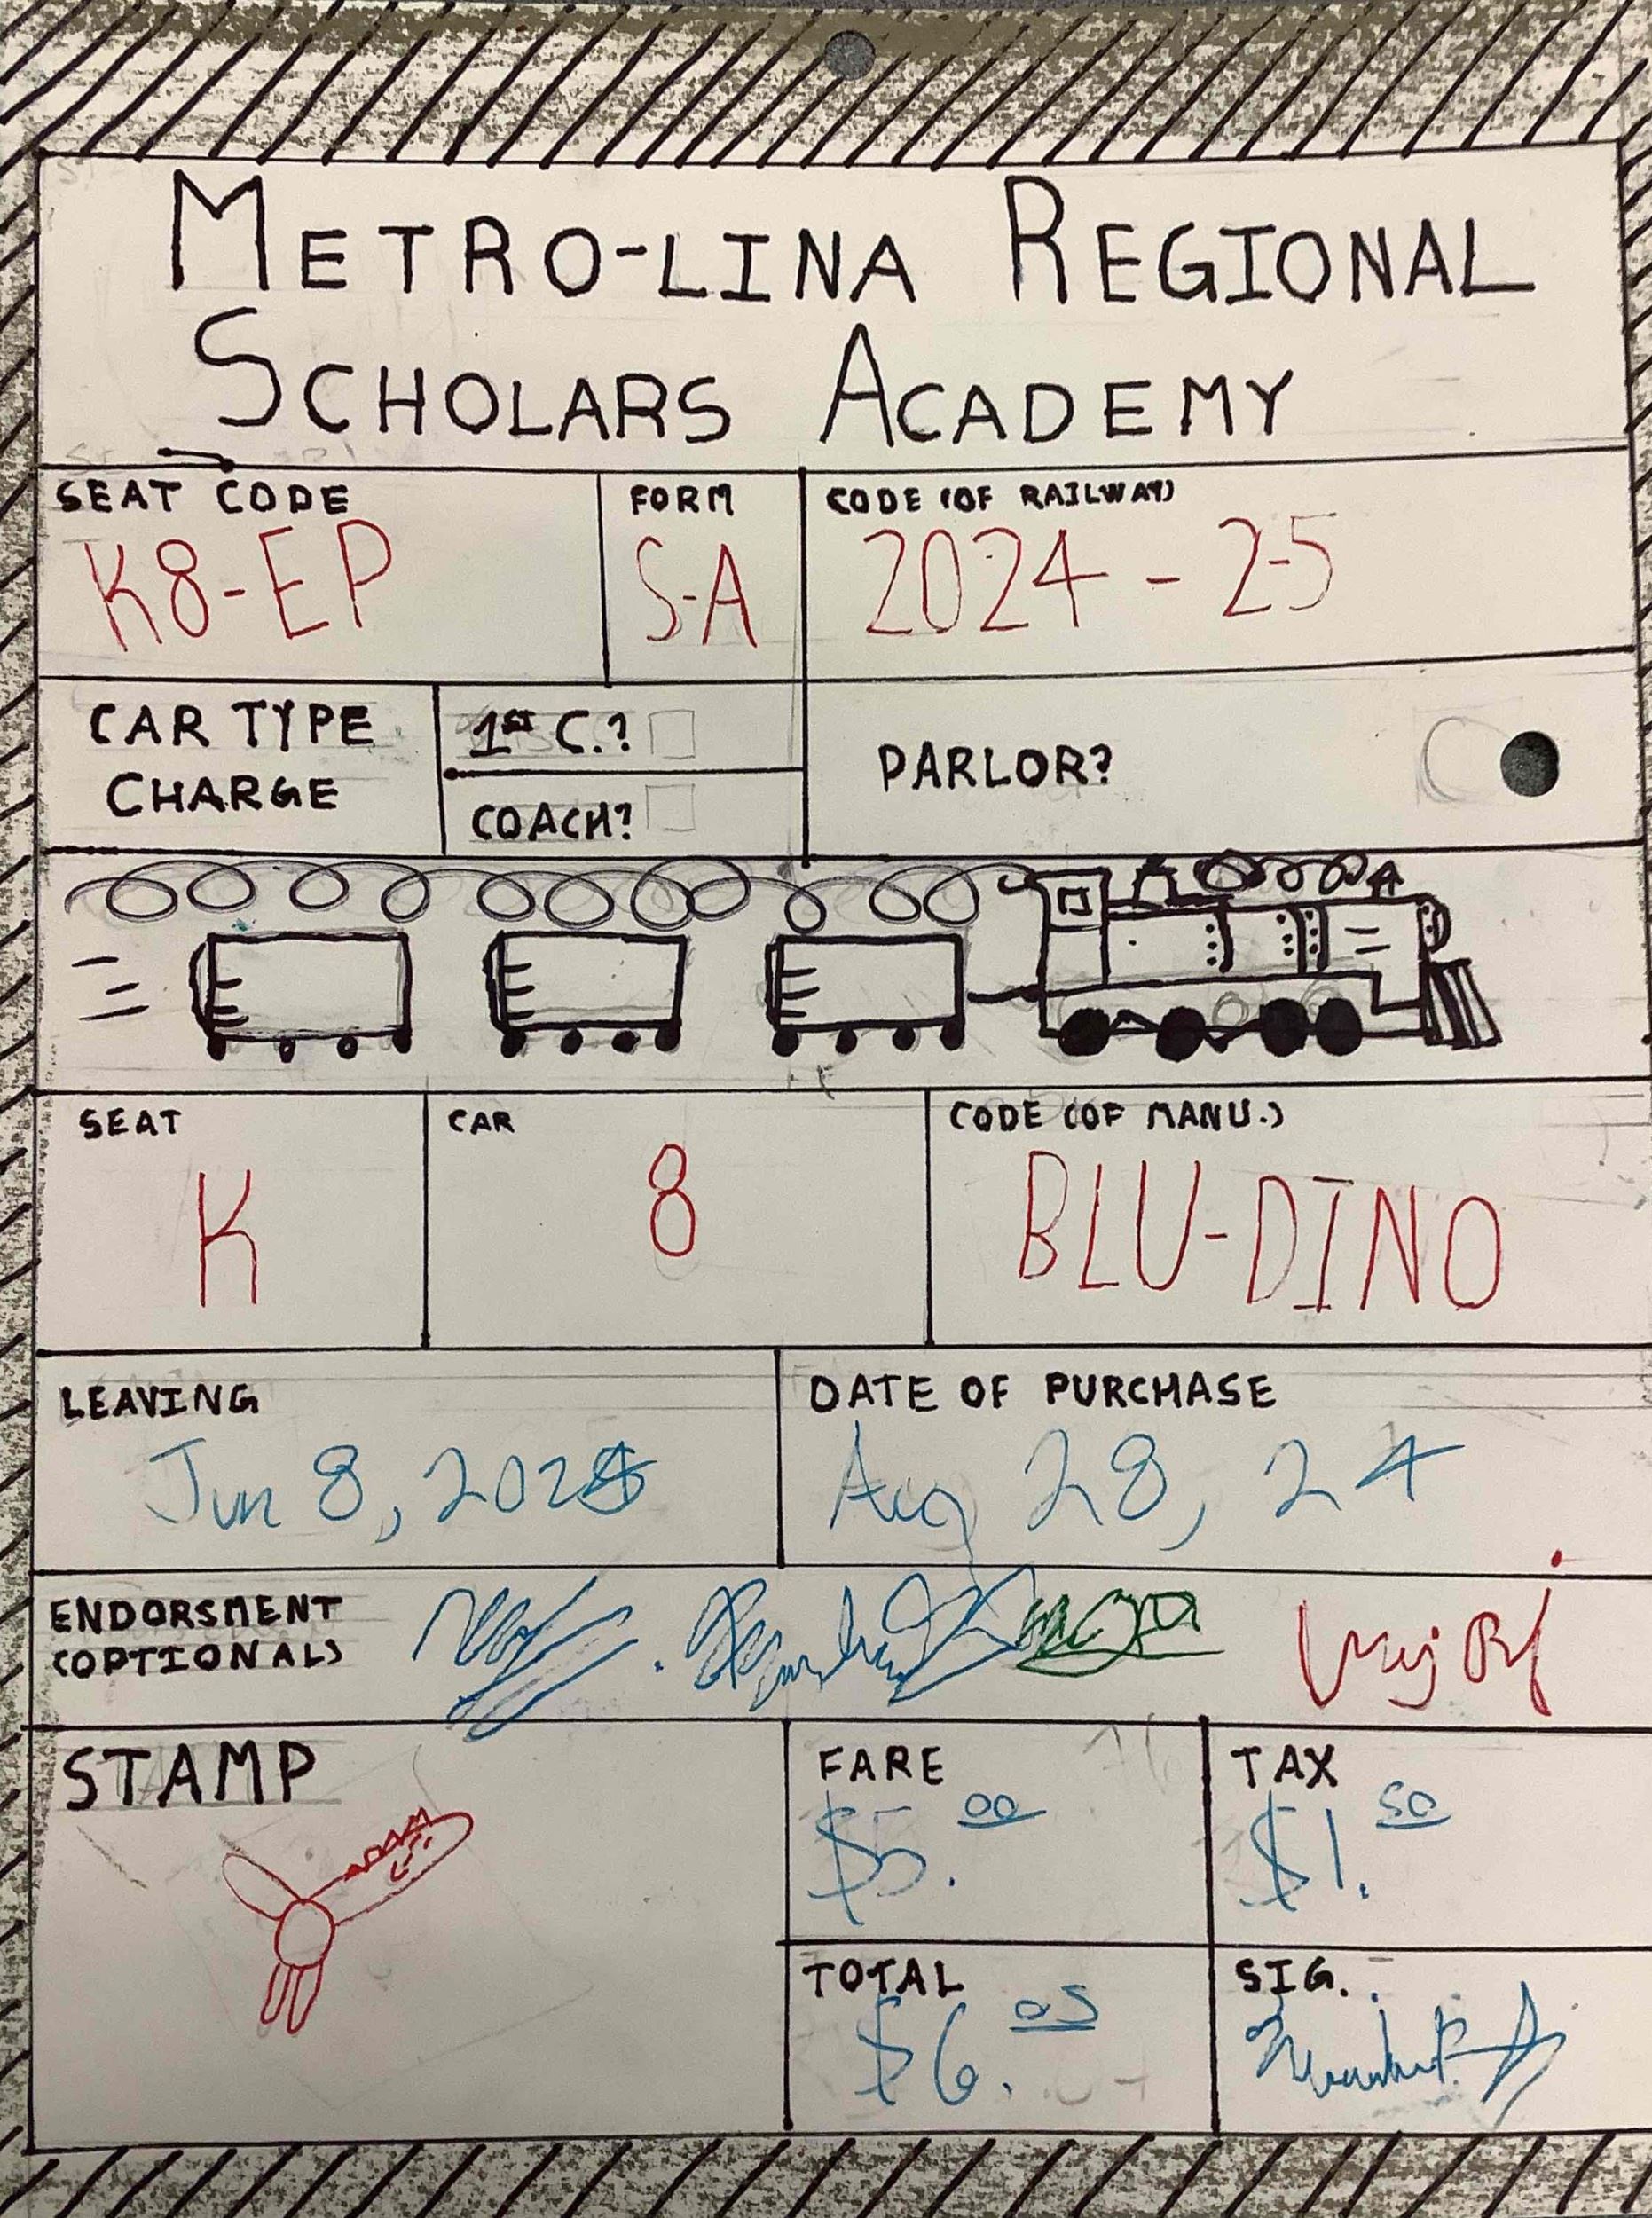 METRO-LINA REGIONAL
SCHOLARS ACADEMY
SEAT CODE
K8-EP
FORM
S-A
CODE (OF RAILWAY)
2024-25
CAR TYPE
CHARGE
1ST C.?
COACH?
PARLOR?
SEAT
K
CAR
8
CODE (OF MANU.)
BLU-DINO
LEAVING
Jun 8, 2025
DATE OF PURCHASE
Aug 28, 24
ENDORSMENT
(OPTIONAL)
STAMP
FARE
$5.00
TAX
$1.50
TOTAL
$6.05
SIG.